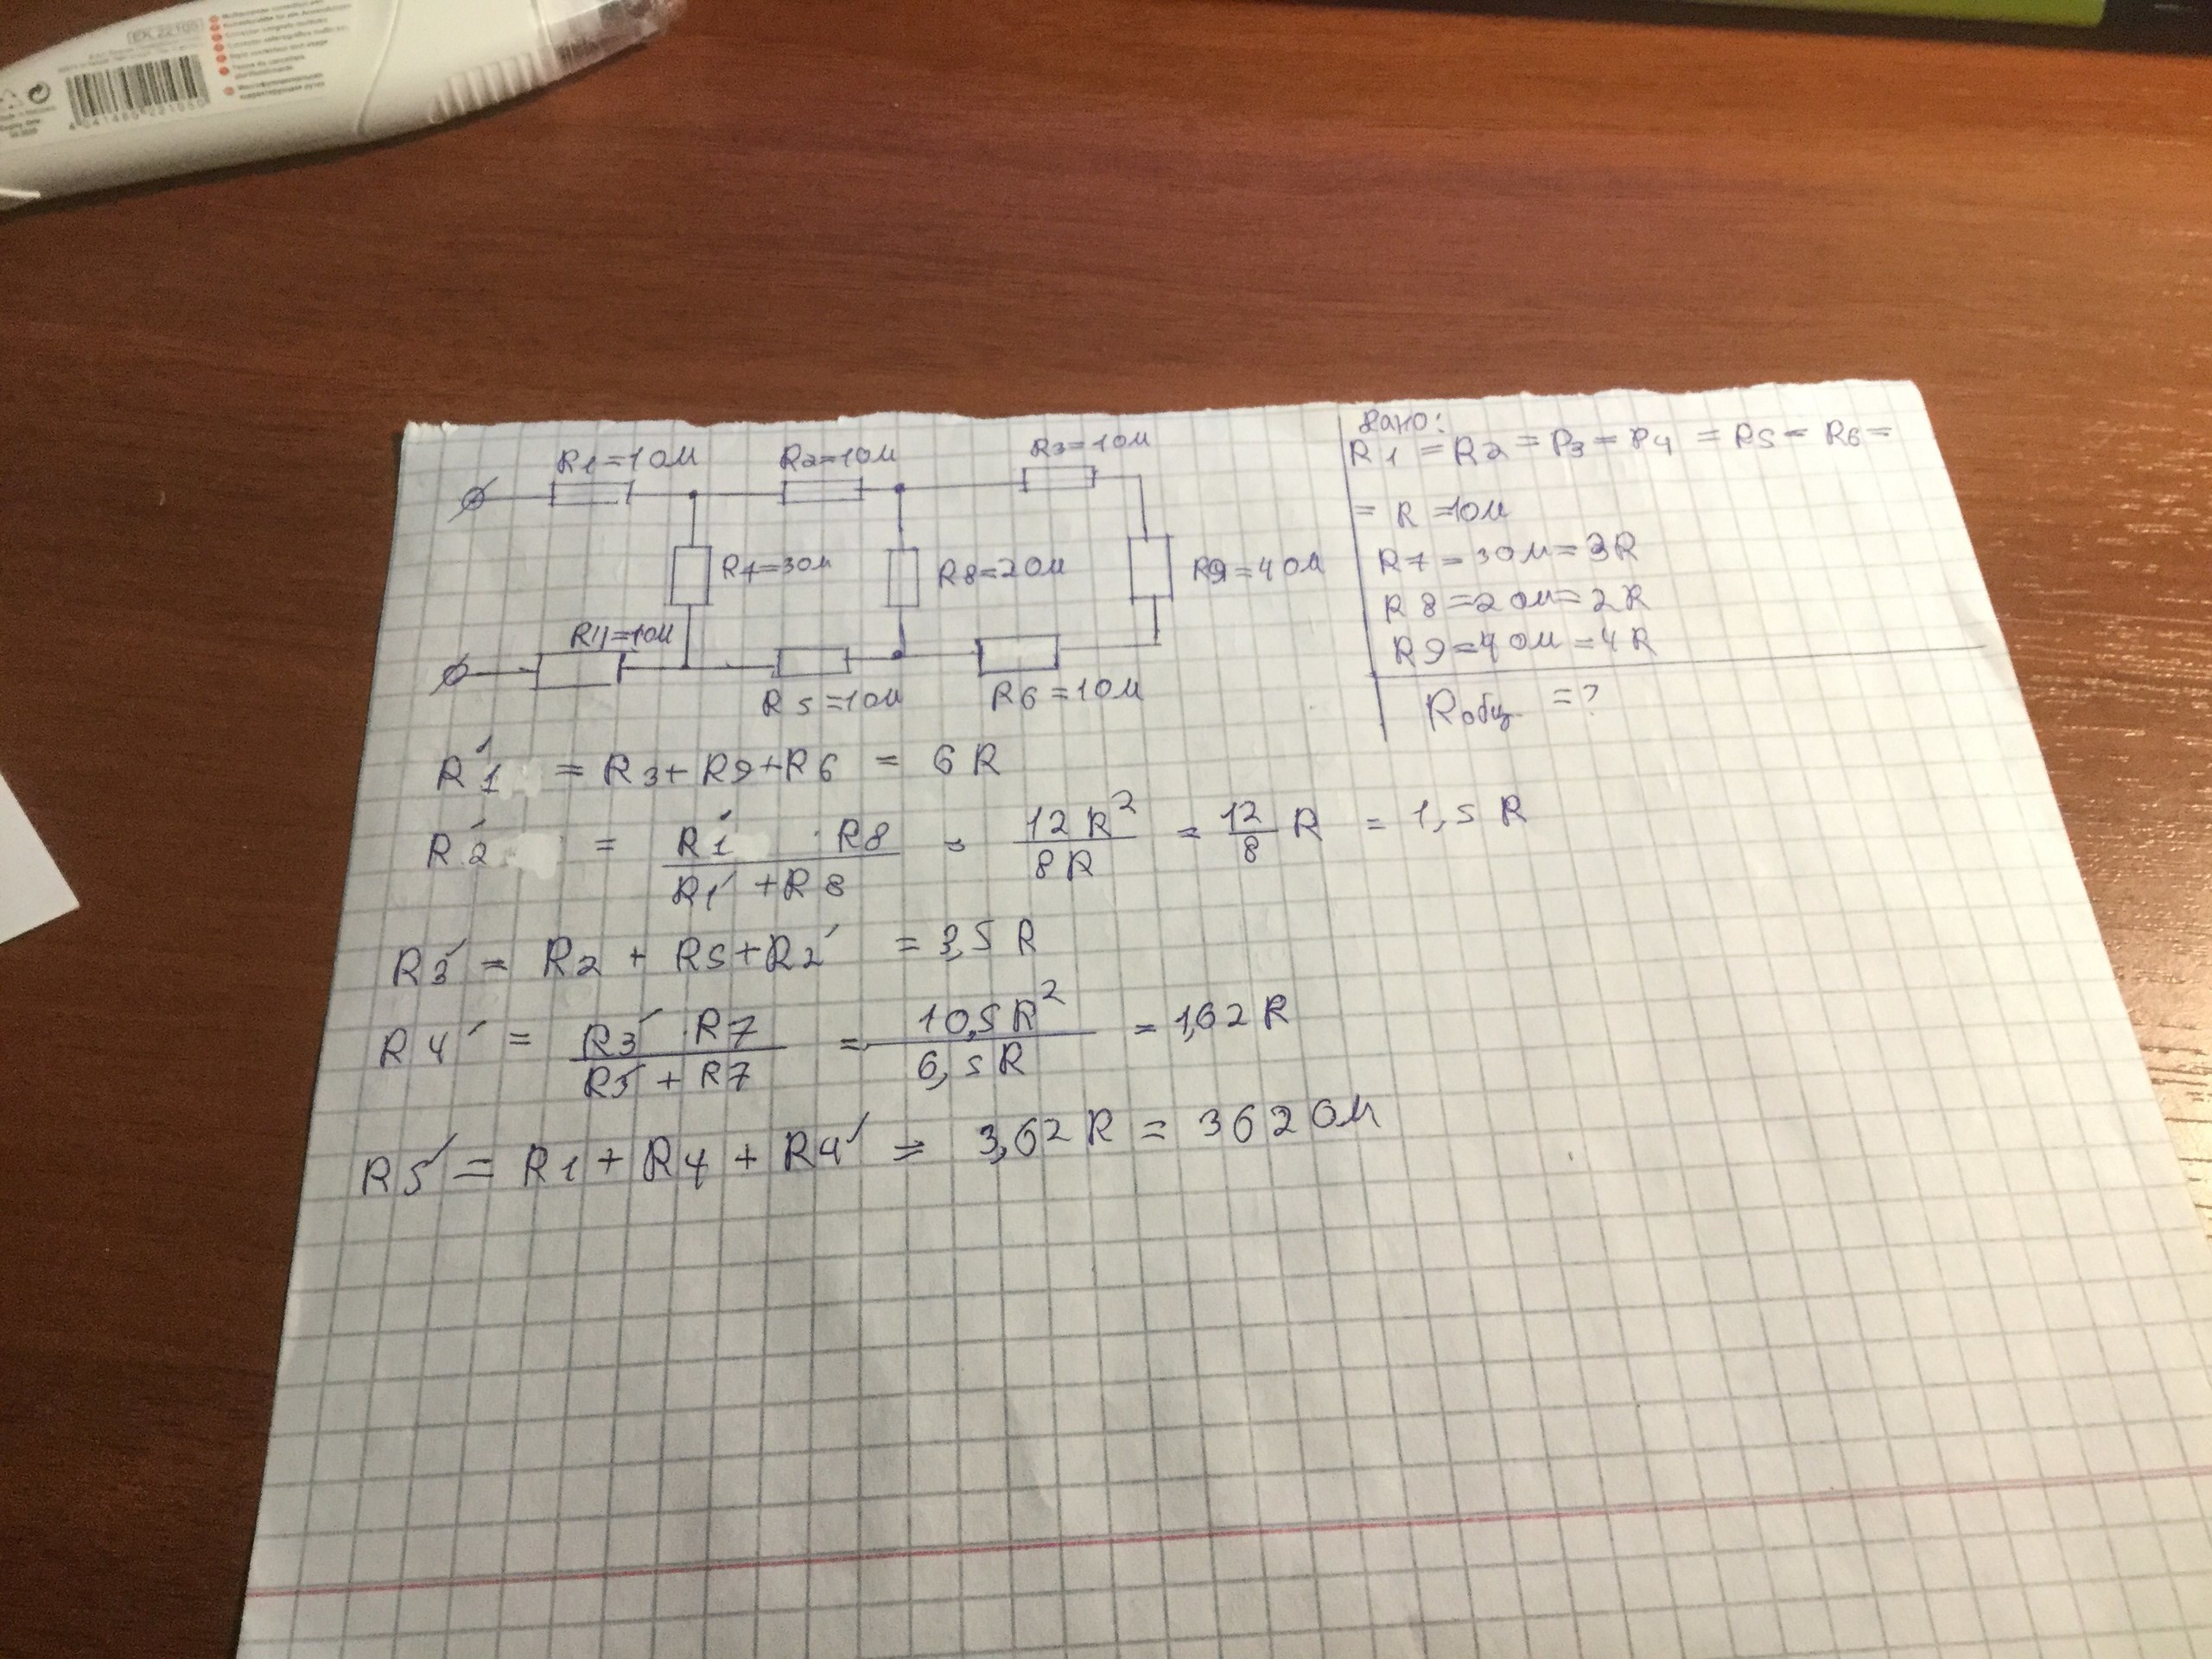 EK 22100
4 041485 221050
R1=1ОМ
R2=1ОМ
R3=1ОМ
R7=3ОМ
R8=2ОМ
R9=4ОМ
R4=1ОМ
R5=1ОМ
R6=1ОМ
Дано:
R1 = R2 = R3 = R4 = R5 = R6 =
= R =1ОМ
R7 = 3ОМ = 3R
R8 = 2ОМ = 2R
R9 = 4ОМ = 4R
Rобщ. = ?
R1' = R3+R9+R6 = 6R
R2' = R1' · R8 / R1' + R8 = 12R² / 8R = 12/8 R = 1,5 R
R3' = R2 + R5 + R2' = 3,5 R
R4' = R3' · R7 / R3' + R7 = 10,5R² / 6,5R = 1,62 R
R5' = R1 + R4 + R4' = 3,62 R = 3,62 ОМ